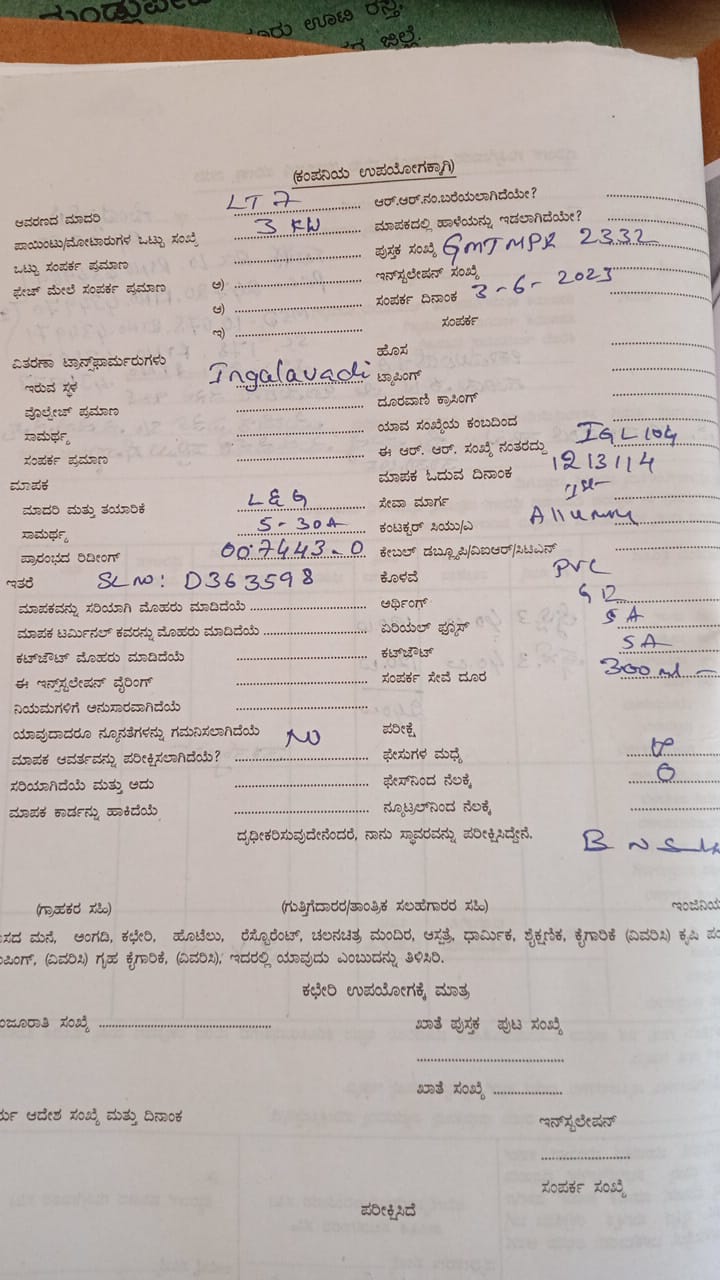 ರು ಊಟಿ ರಸ್ತೆ,
ಜಿಲ್ಲೆ.
(ಕಂಪನಿಯ ಉಪಯೋಗಕ್ಕಾಗಿ)
ಆವರಣದ ಮಾದರಿ LT 7 ಆರ್.ಆರ್.ನಂ.ಬರೆಯಲಾಗಿದೆಯೇ?
ಪಾಯಿಂಟು/ಮೋಟಾರುಗಳ ಒಟ್ಟು ಸಂಖ್ಯೆ 3 KW ಮಾಪಕದಲ್ಲಿ ಹಾಳೆಯನ್ನು ಇಡಲಾಗಿದೆಯೇ?
ಒಟ್ಟು ಸಂಪರ್ಕ ಪ್ರಮಾಣ ಪುಸ್ತಕ ಸಂಖ್ಯೆ GMTMPR 2332
ಫೇಜ್ ಮೇಲೆ ಸಂಪರ್ಕ ಪ್ರಮಾಣ ಅ) ಇನ್‌ಸ್ಟಲೇಷನ್ ಸಂಖ್ಯೆ
ಆ) ಸಂಪರ್ಕ ದಿನಾಂಕ 3-6-2023
ಇ) ಸಂಪರ್ಕ
ವಿತರಣಾ ಟ್ರಾನ್ಸ್‌ಫಾರ್ಮರುಗಳು ಹೊಸ
ಇರುವ ಸ್ಥಳ Ingalavadi ಟ್ಯಾಪಿಂಗ್
ವೊಲ್ಟೇಜ್ ಪ್ರಮಾಣ ದೂರವಾಣಿ ಕ್ರಾಸಿಂಗ್
ಸಾಮರ್ಥ್ಯ ಯಾವ ಸಂಖ್ಯೆಯ ಕಂಬದಿಂದ IGL104
ಸಂಪರ್ಕ ಪ್ರಮಾಣ ಈ ಆರ್. ಆರ್. ಸಂಖ್ಯೆ ನಂತರದ್ದು 1213114
ಮಾಪಕ ಮಾಪಕ ಓದುವ ದಿನಾಂಕ 1st
ಮಾದರಿ ಮತ್ತು ತಯಾರಿಕೆ L&G ಸೇವಾ ಮಾರ್ಗ
ಸಾಮರ್ಥ್ಯ 5-30A ಕಂಟಕ್ಟರ್ ಸಿಯು/ಎ
ಪ್ರಾರಂಭದ ರಿಡೀಂಗ್ 007443-0 ಕೇಬಲ್ ಡಬ್ಲ್ಯೂಪಿ/ವಿಐಆರ್/ಸಿಟಿಎಸ್
ಇತರೆ SL NO: D363598 ಕೊಳವೆ PVC
ಮಾಪಕವನ್ನು ಸರಿಯಾಗಿ ಮೊಹರು ಮಾಡಿದೆಯೆ ಅರ್ಥಿಂಗ್
ಮಾಪಕ ಟರ್ಮಿನಲ್ ಕವರನ್ನು ಮೊಹರು ಮಾಡಿದೆಯೆ ಏರಿಯಲ್ ಫ್ಯೂಸ್ 5A
ಕಟ್‌ಔಟ್ ಮೊಹರು ಮಾಡಿದೆಯೆ ಕಟ್‌ಔಟ್ 5A
ಈ ಇನ್ಸ್‌ಟಲೇಷನ್ ವೈರಿಂಗ್ ಸಂಪರ್ಕ ಸೇವೆ ದೂರ
ನಿಯಮಗಳಿಗೆ ಅನುಸಾರವಾಗಿದೆಯೆ
ಯಾವುದಾದರೂ ನ್ಯೂನತೆಗಳನ್ನು ಗಮನಿಸಲಾಗಿದೆಯೆ NO ಪರೀಕ್ಷೆ
ಮಾಪಕ ಆವರ್ತವನ್ನು ಪರೀಕ್ಷಿಸಲಾಗಿದೆಯೆ? ಫೇಸುಗಳ ಮಧ್ಯೆ
ಸರಿಯಾಗಿದೆಯೆ ಮತ್ತು ಅದು ಫೇಸ್‌ನಿಂದ ನೆಲಕ್ಕೆ
ಮಾಪಕ ಕಾರ್ಡನ್ನು ಹಾಕಿದೆಯೆ ನ್ಯೂಟ್ರಲ್‌ನಿಂದ ನೆಲಕ್ಕೆ
ದೃಢೀಕರಿಸುವುದೇನೆಂದರೆ, ನಾನು ಸ್ಥಾವರವನ್ನು ಪರೀಕ್ಷಿಸಿದ್ದೇನೆ.
(ಗ್ರಾಹಕರ ಸಹಿ) (ಗುತ್ತಿಗೆದಾರರ/ತಾಂತ್ರಿಕ ಸಲಹೆಗಾರರ ಸಹಿ) ಇಂಜಿನಿಯ
ಸದ ಮನೆ, ಅಂಗಡಿ, ಕಛೇರಿ, ಹೊಟೆಲು, ರೆಸ್ಟೊರೆಂಟ್, ಚಲನಚಿತ್ರ ಮಂದಿರ, ಆಸ್ಪತ್ರೆ, ಧಾರ್ಮಿಕ, ಶೈಕ್ಷಣಿಕ, ಕೈಗಾರಿಕೆ (ವಿವರಿಸಿ) ಕೃಷಿ ಪಂ
ಪಿಂಗ್, (ವಿವರಿಸಿ) ಗೃಹ ಕೈಗಾರಿಕೆ, (ವಿವರಿಸಿ), ಇದರಲ್ಲಿ ಯಾವುದು ಎಂಬುದನ್ನು ತಿಳಿಸಿರಿ.
ಕಛೇರಿ ಉಪಯೋಗಕ್ಕೆ ಮಾತ್ರ
ಂಜೂರಾತಿ ಸಂಖ್ಯೆ ಖಾತೆ ಪುಸ್ತಕ ಪುಟ ಸಂಖ್ಯೆ
ಖಾತೆ ಸಂಖ್ಯೆ
ರ್ಯ ಆದೇಶ ಸಂಖ್ಯೆ ಮತ್ತು ದಿನಾಂಕ ಇನ್‌ಸ್ಟಲೇಷನ್
ಸಂಪರ್ಕ ಸಂಖ್ಯೆ
ಪರೀಕ್ಷಿಸಿದೆ